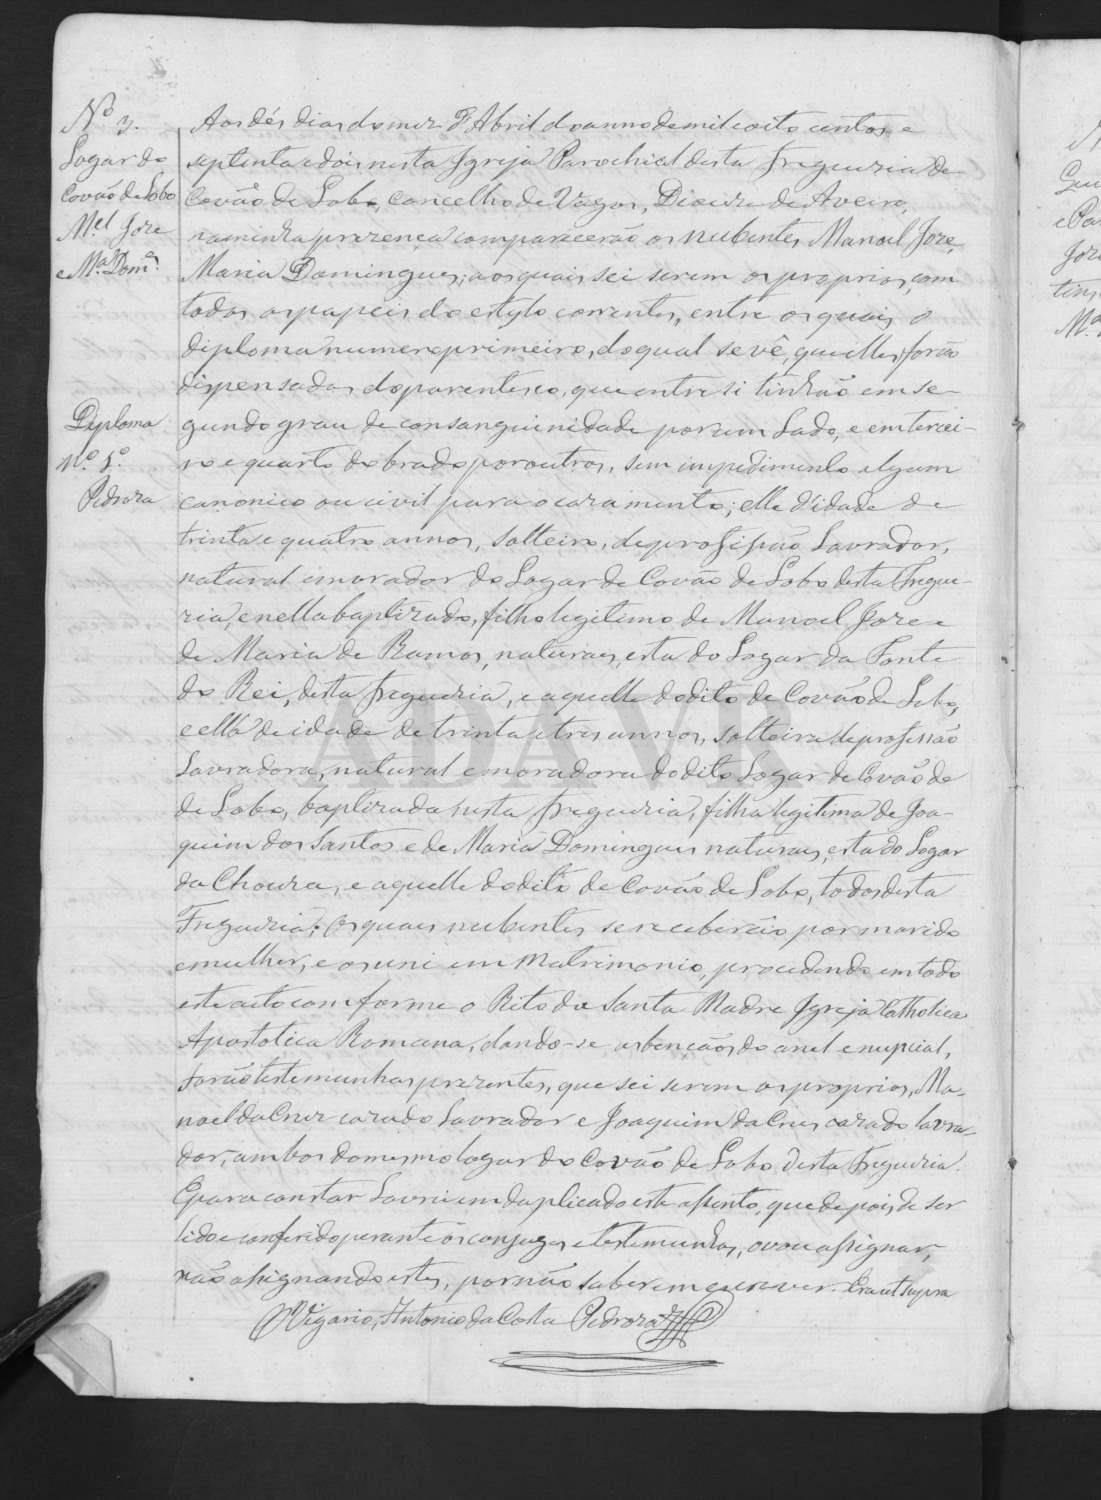 Nº 3.
Logar do
Covão de Lobo
Mel Joze
e Ma. Doma.
Aos dés dias do mez d'Abril do anno de mil e oito centos e
septenta e dois nesta Igreja Parochial desta Freguezia de
Covão de Lobo, Concelho de Vagos, Diocese de Aveiro,
na minha prezença comparecerão os nubentes Manoel Joze,
Maria Domingues; aos quais sei serem os proprios, com
todos os papeis do estylo correntes, entre os quais o
diploma numero primeiro, do qual se vê, que elles forão
dispensados do parentesco, que entre si tinhão em se-
gundo grau de consanguinidade por um lado, e em tercei-
ro e quarto dobrado por outros, sem impedimento algum
canonico ou civil para o cazamento; elle d'idade de
trinta e quatro annos, solteiro, de profissão Lavrador,
natural e morador do Logar de Covão de Lobo desta Fregue-
zia, e nella baptizado, filho legitimo de Manoel Joze e
de Maria de Ramos, naturaes, esta do Logar da Fonte
do Rei, desta freguezia, e aquelle do dito de Covão de Lobo,
e ella de idade de trinta e tres annos, solteira, de profissão
Lavradora, natural e moradora do dito Logar de Covão de
de Lobo, baptizada nesta freguezia, filha legitima de Joa-
quim dos Santos e de Maria Domingues naturaes, esta do Logar
da Choura, e aquelle do dito de Covão de Lobo, todos desta
Freguezia; Os quaes nubentes se receberão por marido
e mulher, e os uni em Matrimonio, procedendo em todo
este acto comforme o Rito da Santa Madre Igreja Catholica
Apostolica Romana, dando-se as bençãos do anel e nupcial,
forão testemunhas prezentes, que sei serem os proprios, Ma-
noel da Cruz cazado Lavrador e Joaquim da Cruz cazado lavra-
dor, ambos do mesmo logar do Covão de Lobo desta freguezia.
E para constar Lavrei em duplicado este assento, que depois de ser
lido e conferido perante os conjuges e testemunhas, o vou assignar,
não assignando estes, por não saberem escrever. Era ut supra
O Vigario, Antonio da Costa Pedroza
Diploma
nº. 1º.
Pedroza
ADAVR